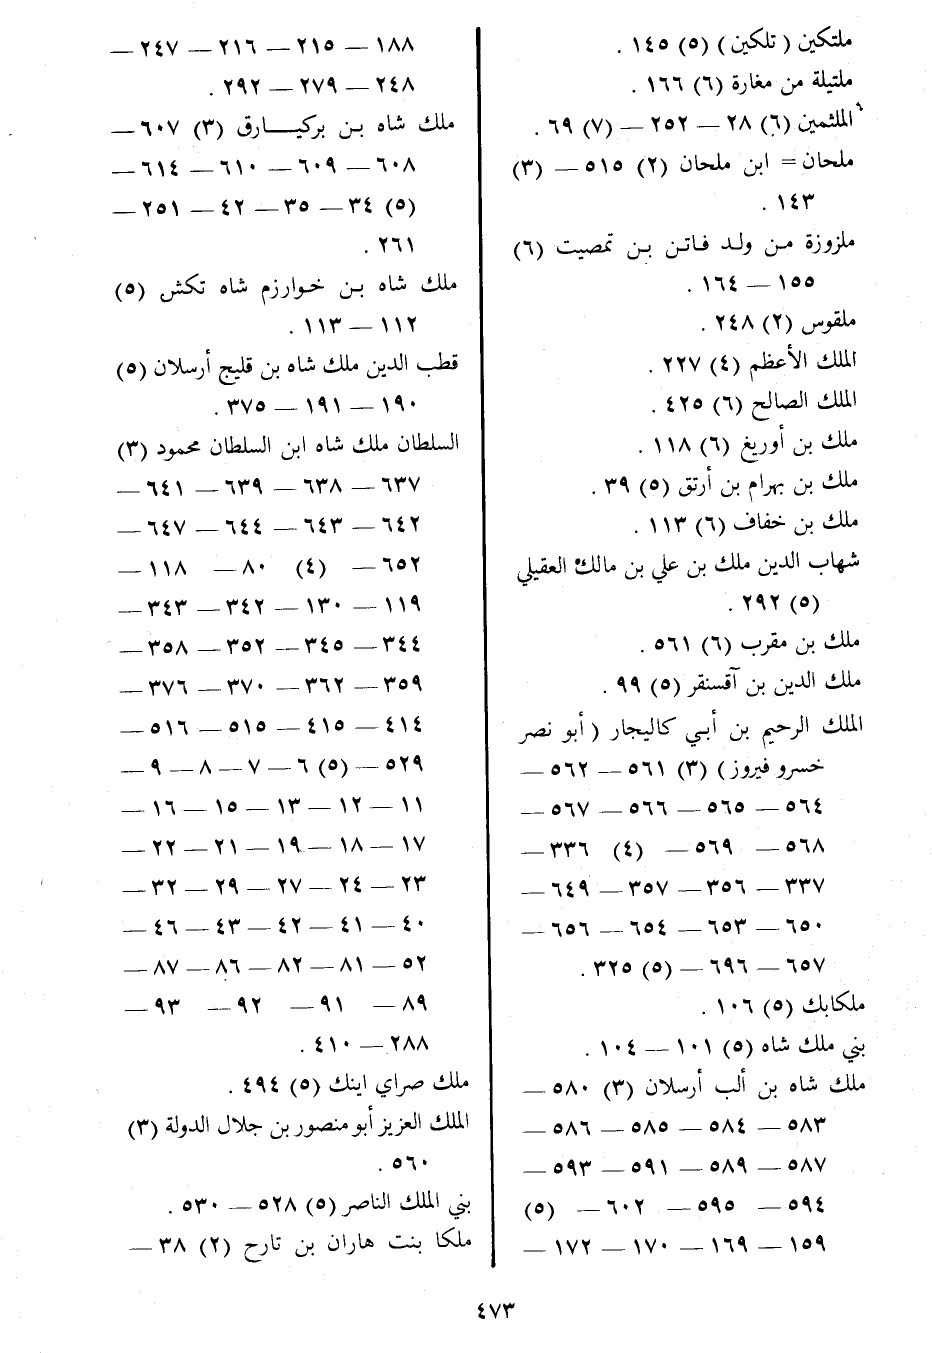 ملتكين ( تلكين ) (٥) ١٤٥ .
ملتيلة من مغارة (٦) ١٦٦ .
الملثمين (٦) ٢٨ — ٢٥٢ — (٧) ٦٩ .
ملحان = ابن ملحان (٢) ٥١٥ — (٣)
١٤٣ .
ملزوزة من ولد فاتن بن تمصيت (٦)
١٥٥ — ١٦٤ .
ملقوس (٢) ٢٤٨ .
الملك الأعظم (٤) ٢٢٧ .
الملك الصالح (٦) ٤٢٥ .
ملك بن أوريغ (٦) ١١٨ .
ملك بن بهرام بن أرتق (٥) ٣٩ .
ملك بن خفاف (٦) ١١٣ .
شهاب الدين ملك بن علي بن مالك العقيلي
(٥) ٢٩٢ .
ملك بن مقرب (٦) ٥٦١ .
ملك الدين بن آقسنقر (٥) ٩٩ .
الملك الرحيم بن أبي كاليجار ( أبو نصر
خسرو فيروز ) (٣) ٥٦١ — ٥٦٢ —
٥٦٤ — ٥٦٥ — ٥٦٦ — ٥٦٧ —
٥٦٨ — ٥٦٩ — (٤) ٣٣٦ —
٣٣٧ — ٣٥٦ — ٣٥٧ — ٦٤٩ —
٦٥٠ — ٦٥٣ — ٦٥٤ — ٦٥٦ —
٦٥٧ — ٦٩٦ — (٥) ٣٢٥ .
ملكابك (٥) ١٠٦ .
بني ملك شاه (٥) ١٠١ — ١٠٤ .
ملك شاه بن ألب أرسلان (٣) ٥٨٠ —
٥٨٣ — ٥٨٤ — ٥٨٥ — ٥٨٦ —
٥٨٧ — ٥٨٩ — ٥٩١ — ٥٩٣ —
٥٩٤ — ٥٩٥ — ٦٠٢ — (٥)
١٥٩ — ١٦٩ — ١٧٠ — ١٧٢ —
١٨٨ — ٢١٥ — ٢١٦ — ٢٤٧ —
٢٤٨ — ٢٧٩ — ٢٩٢ .
ملك شاه بن بركيارق (٣) ٦٠٧ —
٦٠٨ — ٦٠٩ — ٦١٠ — ٦١٤ —
(٥) ٣٤ — ٣٥ — ٤٢ — ٢٥١ —
٢٦١ .
ملك شاه بن خوارزم شاه تكش (٥)
١١٢ — ١١٣ .
قطب الدين ملك شاه بن قليج أرسلان (٥)
١٩٠ — ١٩١ — ٣٧٥ .
السلطان ملك شاه ابن السلطان محمود (٣)
٦٣٧ — ٦٣٨ — ٦٣٩ — ٦٤١ —
٦٤٢ — ٦٤٣ — ٦٤٤ — ٦٤٧ —
٦٥٢ — (٤) ٨٠ — ١١٨ —
١١٩ — ١٣٠ — ٣٤٢ — ٣٤٣ —
٣٤٤ — ٣٤٥ — ٣٥٢ — ٣٥٨ —
٣٥٩ — ٣٦٢ — ٣٧٠ — ٣٧٦ —
٤١٤ — ٤١٥ — ٥١٥ — ٥١٦ —
٥٢٩ — (٥) ٦ — ٧ — ٨ — ٩ —
١١ — ١٢ — ١٣ — ١٥ — ١٦ —
١٧ — ١٨ — ١٩ — ٢١ — ٢٢ —
٢٣ — ٢٤ — ٢٧ — ٢٩ — ٣٢ —
٤٠ — ٤١ — ٤٢ — ٤٣ — ٤٦ —
٥٢ — ٨١ — ٨٢ — ٨٦ — ٨٧ —
٨٩ — ٩١ — ٩٢ — ٩٣ —
٢٨٨ — ٤١٠ .
ملك صراي اينك (٥) ٤٩٤ .
الملك العزيز أبو منصور بن جلال الدولة (٣)
٥٦٠ .
بني الملك الناصر (٥) ٥٢٨ — ٥٣٠ .
ملكا بنت هاران بن تارح (٢) ٣٨ —
٤٧٣